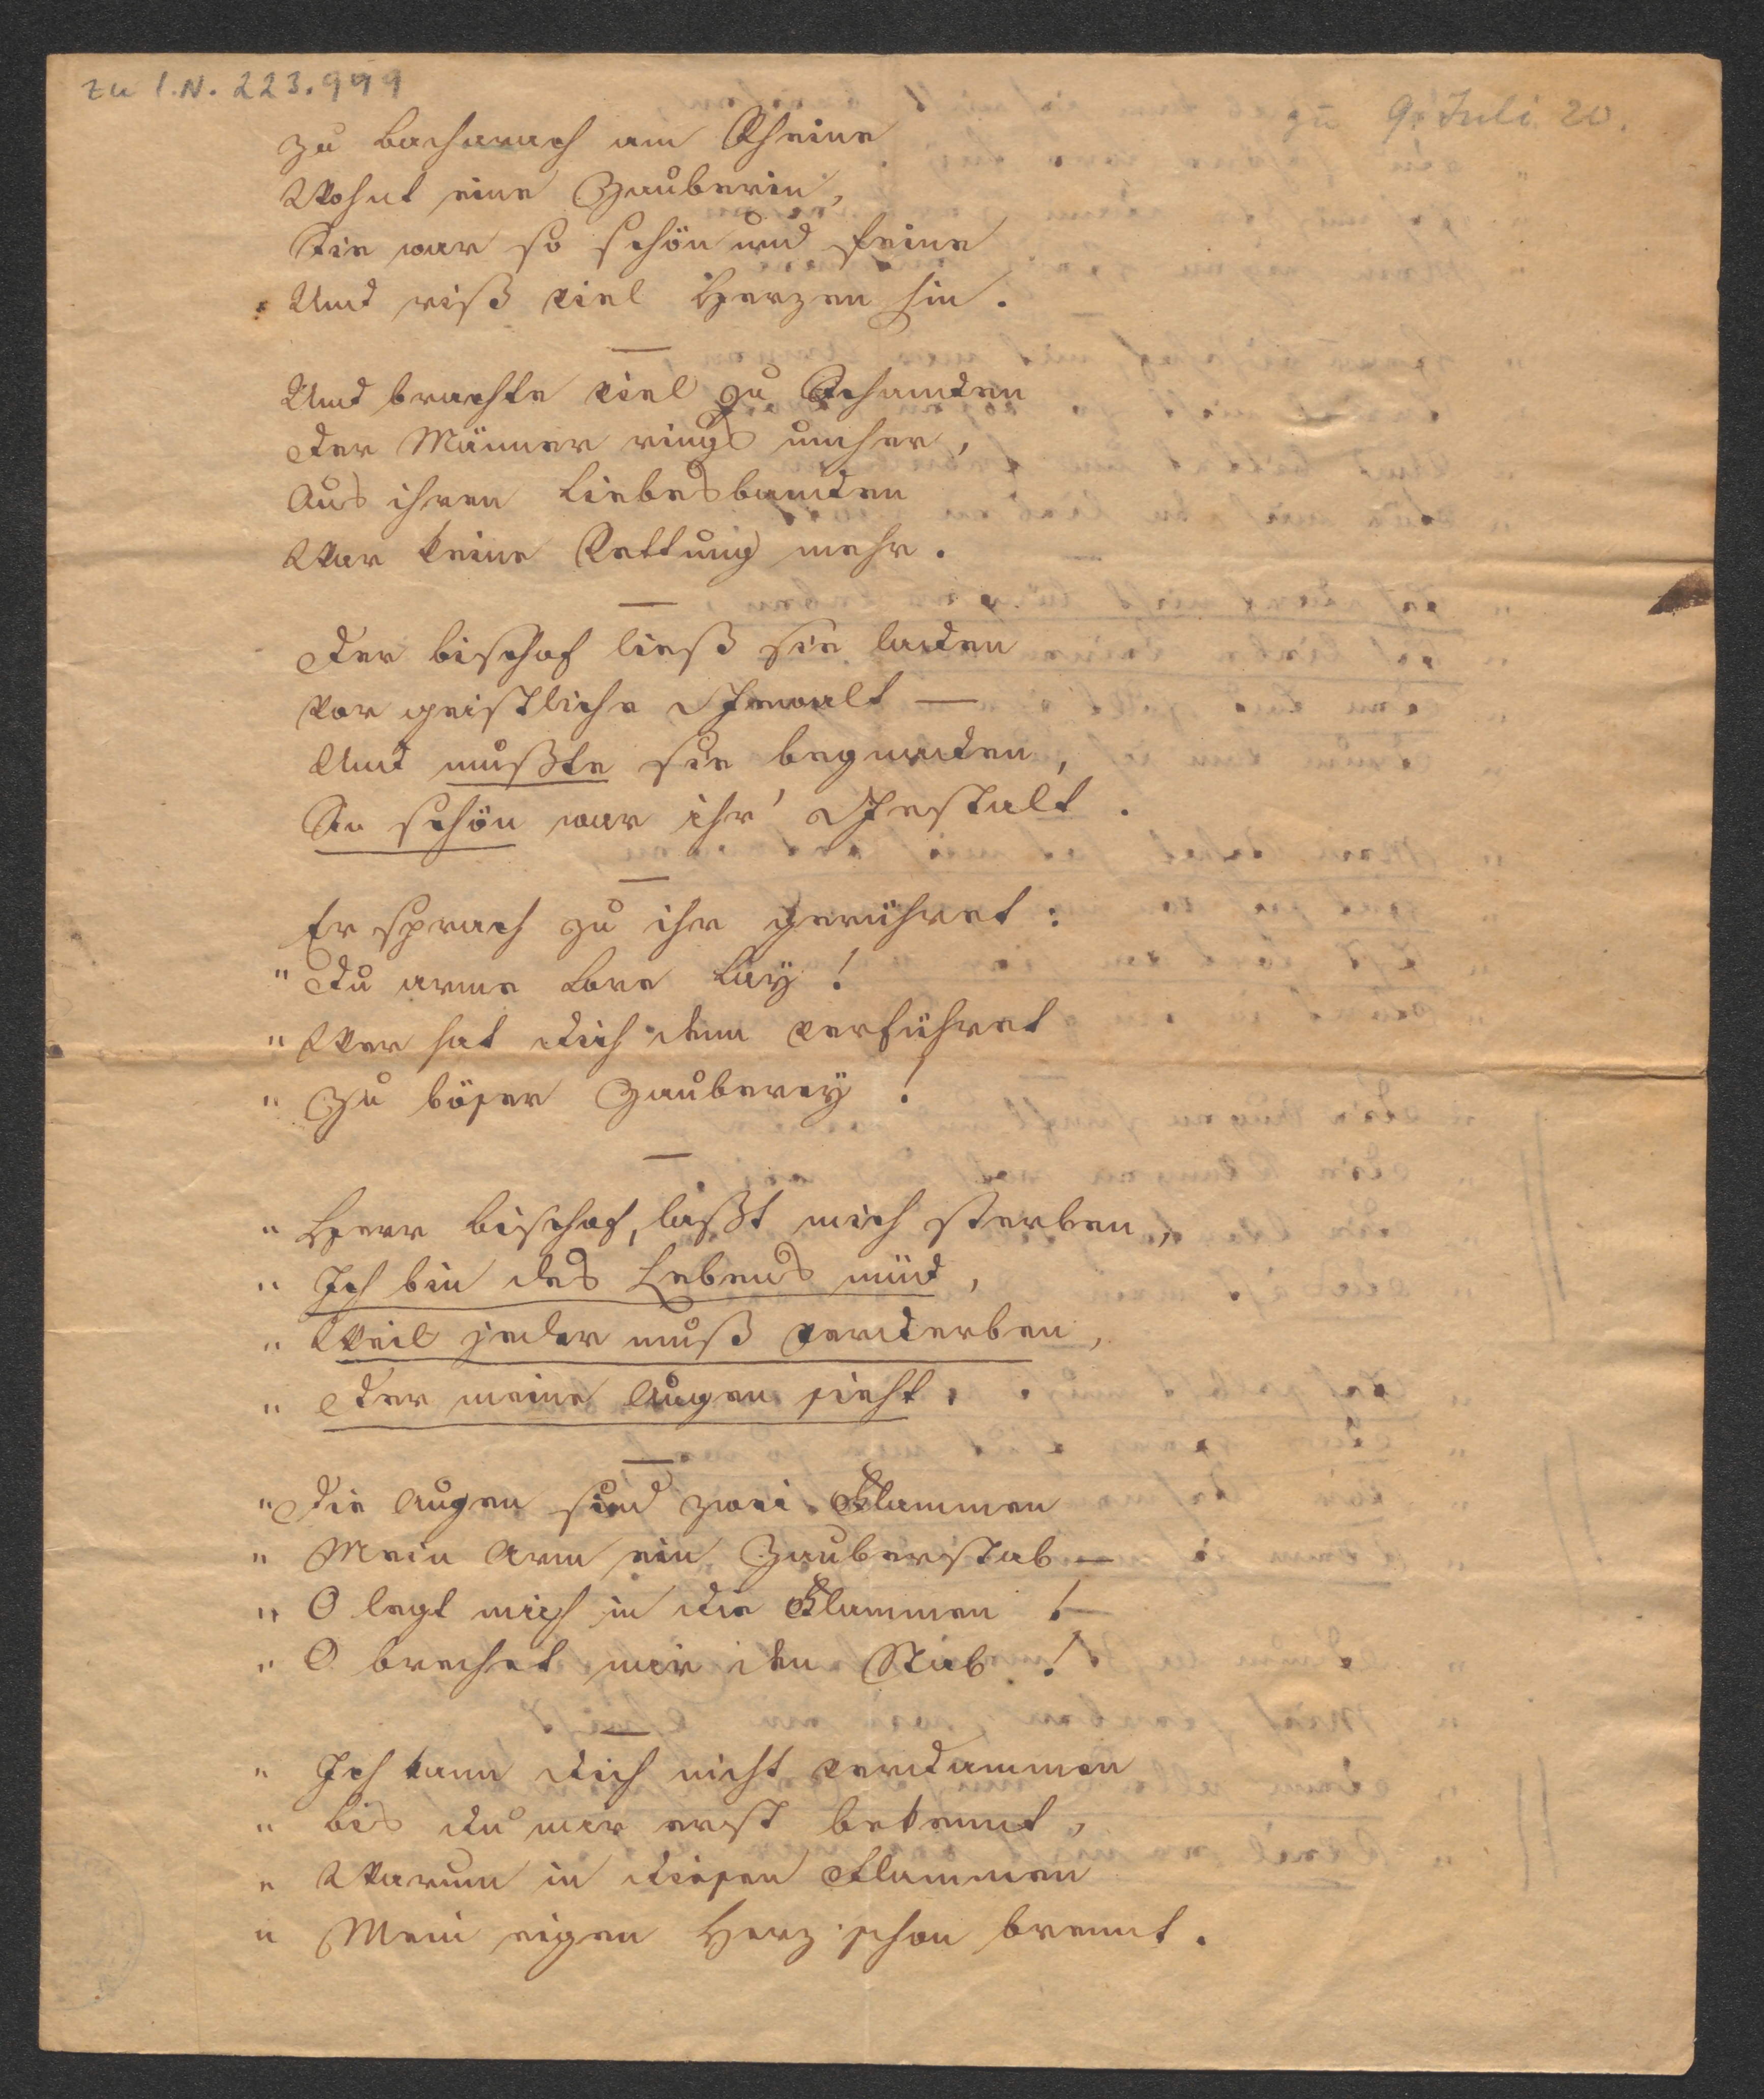 zu I.N. 223.999
zu 9. Juli 20.
Zu Bacharach am Rheine
Wohnt eine Zauberin,
Sie war so schön und feine
Und riß viel Herzen hin.
—
Und brachte viel zu Schanden
Der Männer rings umher,
Aus ihren Liebesbanden
War keine Rettung mehr.
—
Der Bischof ließ sie laden
Vor geistliche Gewalt —
Und mußte sie begnaden,
So schön war ihr' Gestalt.
—
Er sprach zu ihr gerühret:
" Du arme Lore Lay!
" Wer hat dich denn verführet
" Zu böser Zauberey!
—
" Herr Bischof, laßt mich sterben,
" Ich bin des Lebens müd,
" Weil jeder muß verderben,
" Der meine Augen sieht.
—
" Die Augen sind zwei Flammen
" Mein Arm ein Zauberstab —
" O legt mich in die Flammen! —
" O brechet mir den Stab!
—
" Ich kann dich nicht verdammen
" Bis du mir erst bekennt,
" Warum in diesen Flammen
" Mein eigen Herz schon brennt.